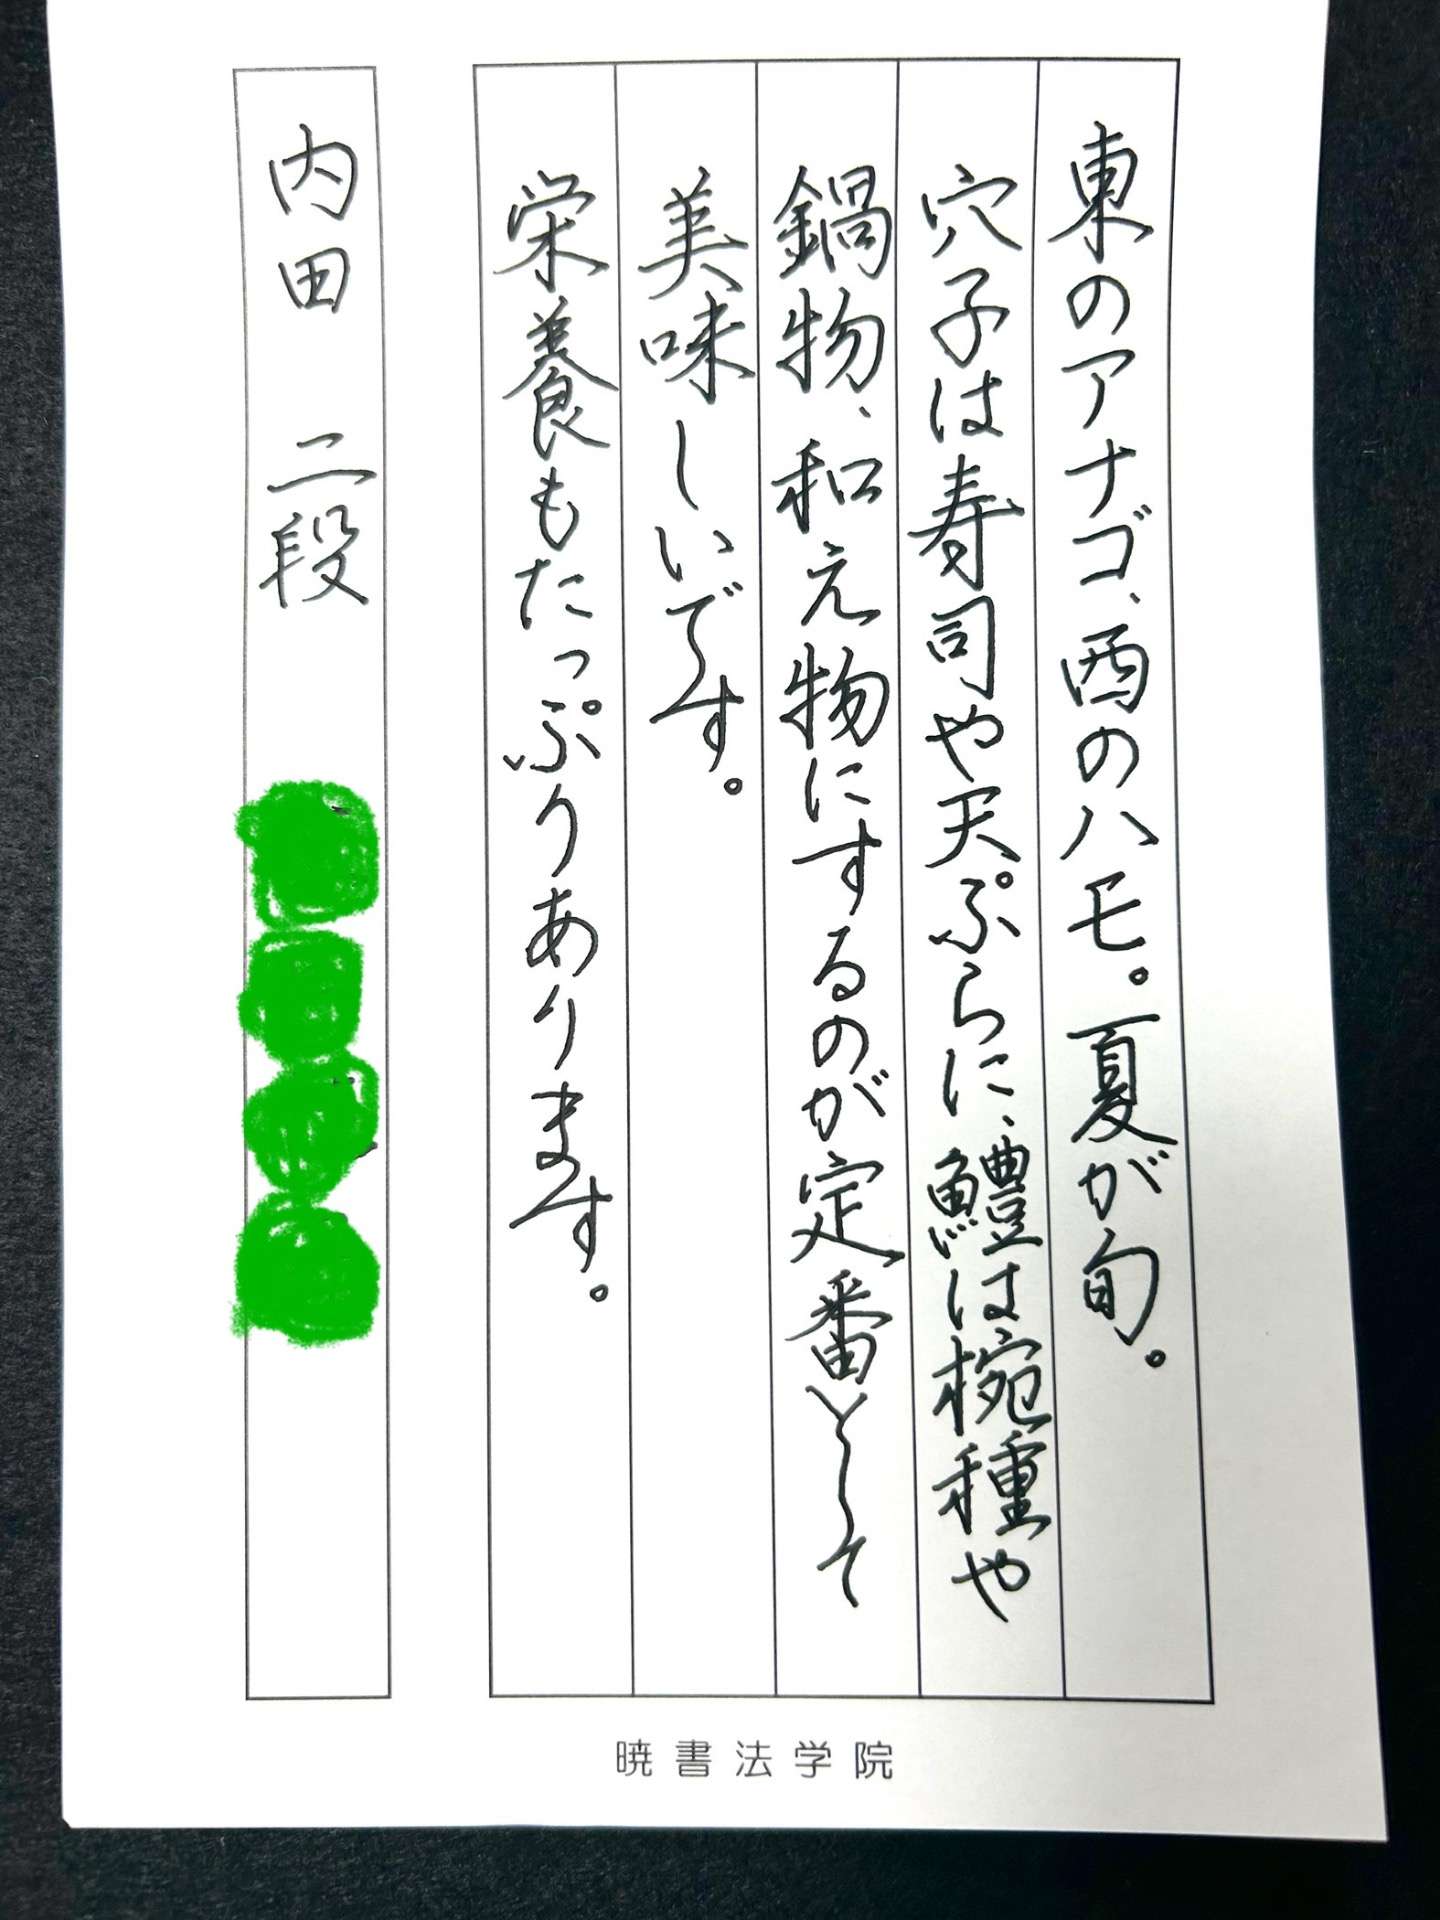 東のアナゴ、西のハモ。夏が旬。
穴子は寿司や天ぷらに、鱧は椀種や
鍋物、和え物にするのが定番として
美味しいです。
栄養もたっぷりあります。
内田 二段
暁書法学院